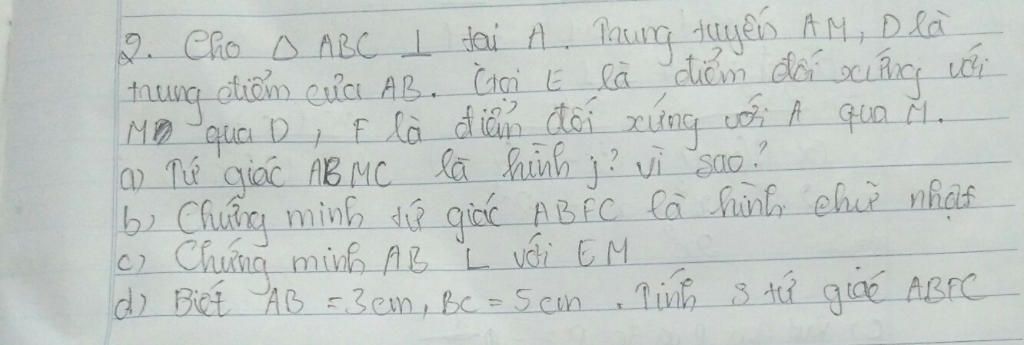 2. Cho Δ ABC ⊥ tại A. Trung tuyến AM, D là
trung điểm của AB. Gọi E là điểm đối xứng với
M qua D, F là điểm đối xứng với A qua M.
a) Tứ giác ABMC là hình j? vì sao?
b) Chứng minh tứ giác ABFC là hình chữ nhật
c) Chứng minh AB ⊥ với EM
d) Biết AB = 3cm, BC = 5cm. Tính S tứ giác ABFC